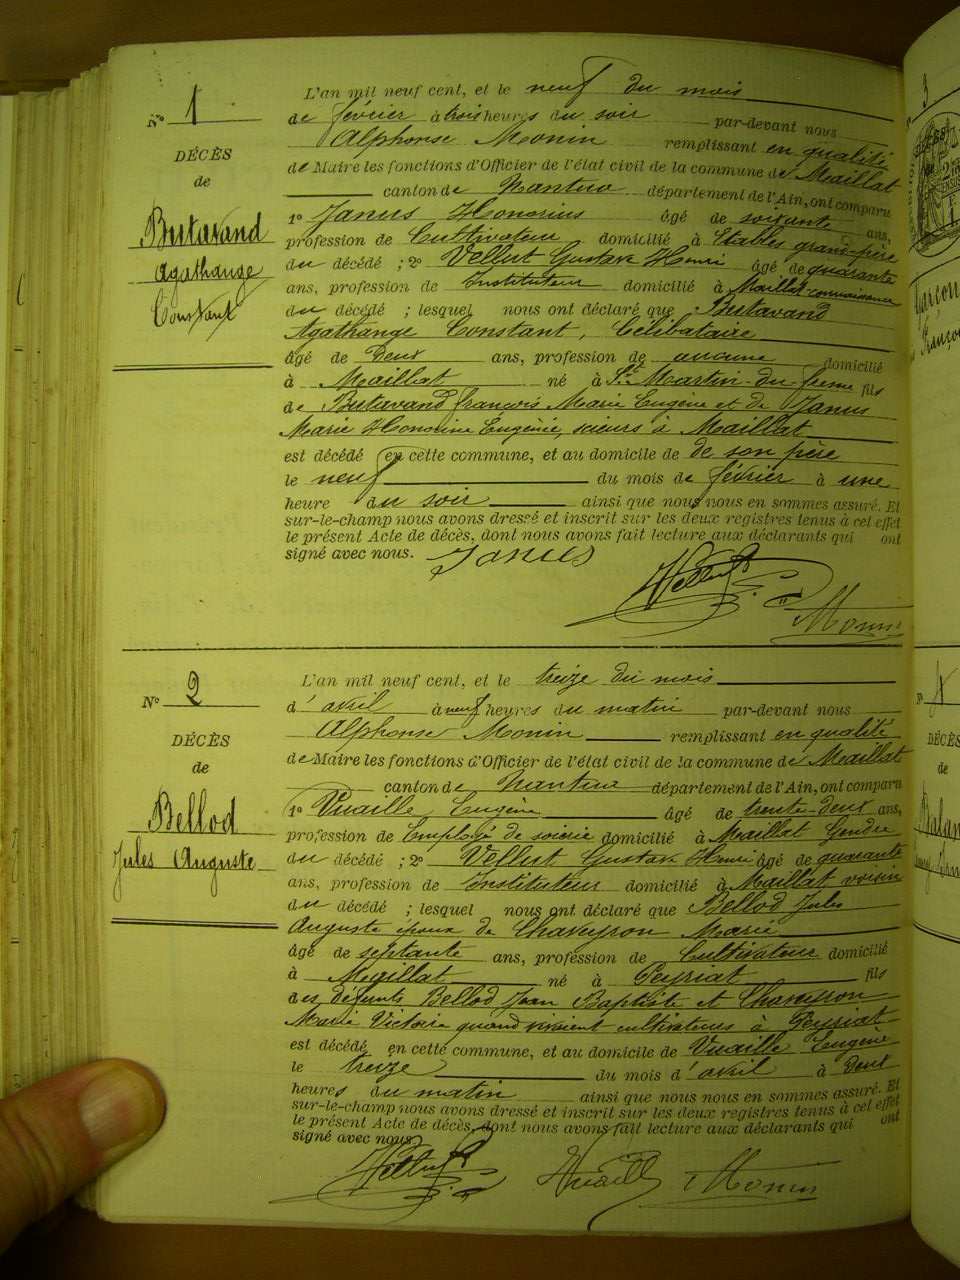 N° 1
DÉCÈS
de
Butavand
Agathange
Constant
L'an mil neuf cent, et le neuf du mois
de février à trois heures du soir par-devant nous
Alphonse Monin remplissant en qualité
de Maire les fonctions d'Officier de l'état civil de la commune de Maillat
canton de Nantua département de l'Ain, ont comparu
1° Janus Honorius âgé de soixante ans,
profession de Cultivateur domicilié à Etables grand-père
du décédé ; 2° Vellut Gustave Henri âgé de quarante
ans, profession de Instituteur domicilié à Maillat connaissance
du décédé ; lesquel nous ont déclaré que Butavand
Agathange Constant, Célibataire
âgé de Deux ans, profession de aucune domicilié
à Maillat né à St Martin-du-frene fils
de Butavand françois Marie Eugène et de Janus
Marie Honorine Eugénie, scieurs à Maillat
est décédé en cette commune, et au domicile de de son père
le neuf du mois de février à une
heure du soir ainsi que nous nous en sommes assuré. Et
sur-le-champ nous avons dressé et inscrit sur les deux registres tenus à cet effet
le présent Acte de décès, dont nous avons fait lecture aux déclarants qui ont
signé avec nous. Janus
Vellut
Monin
N° 2
DÉCÈS
de
Bellod
Jules Auguste
L'an mil neuf cent, et le treize du mois
d'avril à neuf heures du matin par-devant nous
Alphonse Monin remplissant en qualité
de Maire les fonctions d'Officier de l'état civil de la commune de Maillat
canton de Nantua département de l'Ain, ont comparu
1° Vuaille Eugène âgé de trente-deux ans,
profession de Employé de soierie domicilié à Maillat Gendre
du décédé ; 2° Vellut Gustave Henri âgé de quarante
ans, profession de Instituteur domicilié à Maillat voisin
du décédé ; lesquel nous ont déclaré que Bellod Jules
Auguste époux de Chaveyron Marie
âgé de septante ans, profession de Cultivateur domicilié
à Maillat né à Peyriat fils
des défunts Bellod Jean Baptiste et Chaveyron
Marie Victoire quand vivaient cultivateurs à Peyriat
est décédé en cette commune, et au domicile de Vuaille Eugène
le treize du mois d'avril à Deux
heures du matin ainsi que nous nous en sommes assuré. Et
sur-le-champ nous avons dressé et inscrit sur les deux registres tenus à cet effet
le présent Acte de décès, dont nous avons fait lecture aux déclarants qui ont
signé avec nous.
Vellut Vuaille Monin
3
DÉCÈS
de